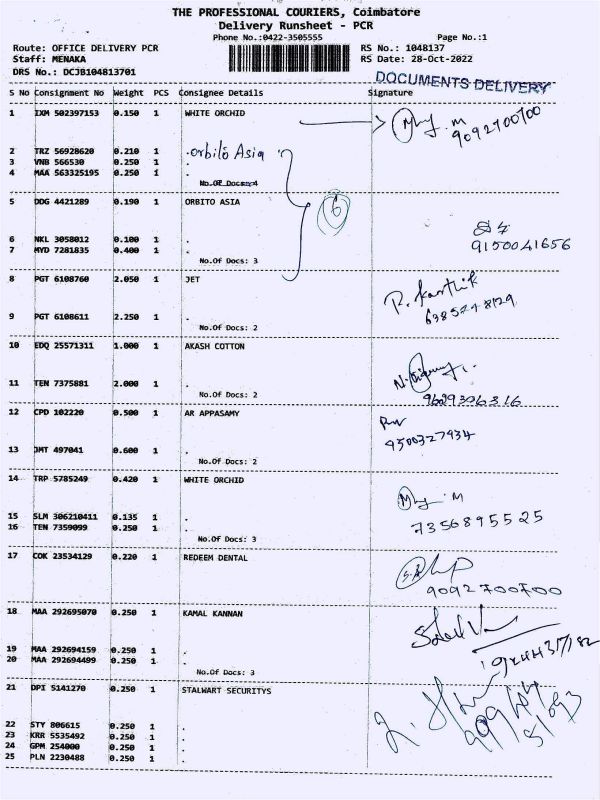 THE PROFESSIONAL COURIERS, Coimbatore
Delivery Runsheet - PCR
Phone No.:0422-3505555 Page No.:1
Route: OFFICE DELIVERY PCR RS No.: 1048137
Staff: MENAKA RS Date: 28-Oct-2022
DRS No.: DCJB104813701
DOCUMENTS DELIVERY
S No Consignment No Weight PCS Consignee Details Signature
1 IXM 502397153 0.150 1 WHITE ORCHID
9092700700
2 TRZ 56928620 0.210 1 . orbito Asia
3 VNB 566530 0.250 1 .
4 MAA 563325195 0.250 1 .
No.Of Docs:4
5 DDG 4421289 0.190 1 ORBITO ASIA
6
6 NKL 3058012 0.100 1 .
7 MYD 7281835 0.400 1 .
9150041656
No.Of Docs: 3
8 PGT 6108760 2.050 1 JET
R. Karthik
9 PGT 6108611 2.250 1 .
No.Of Docs: 2
10 EDQ 25571311 1.000 1 AKASH COTTON
11 TEN 7375881 2.000 1 .
No.Of Docs: 2
9629326316
12 CPD 102220 0.500 1 AR APPASAMY
9500327934
13 JMT 497041 0.600 1 .
No.Of Docs: 2
14 TRP 5785249 0.420 1 WHITE ORCHID
15 SLM 306210411 0.135 1 .
16 TEN 7359099 0.250 1 .
7356895525
No.Of Docs: 3
17 COK 23534129 0.220 1 REDEEM DENTAL
9092700700
18 MAA 292695070 0.250 1 KAMAL KANNAN
19 MAA 292694159 0.250 1 .
20 MAA 292694499 0.250 1 .
No.Of Docs: 3
21 DPI 5141270 0.250 1 STALWART SECURITYS
22 STY 806615 0.250 1 .
23 KRR 5535492 0.250 1 .
24 GPM 254000 0.250 1 .
25 PLN 2230488 0.250 1 .